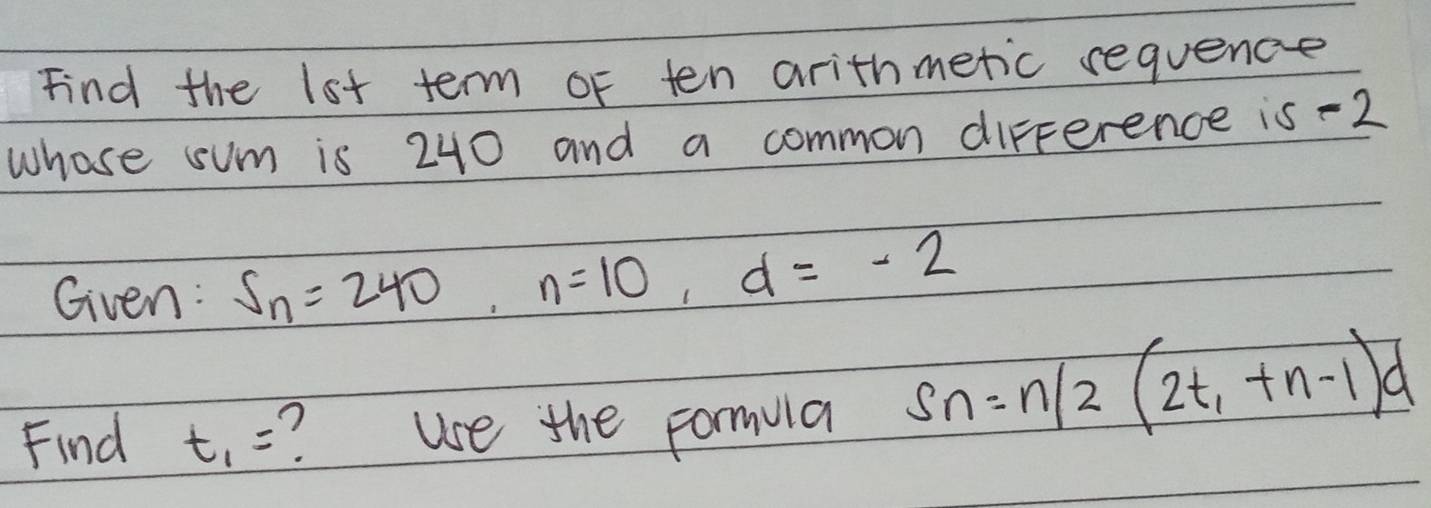 Find the 1st term of ten arithmetic sequence
whose sum is 240 and a common difference is -2
Given: Sn = 240, n=10, d = -2
Find t₁ =? Use the formula Sn = n/2 (2t₁ +n-1)d